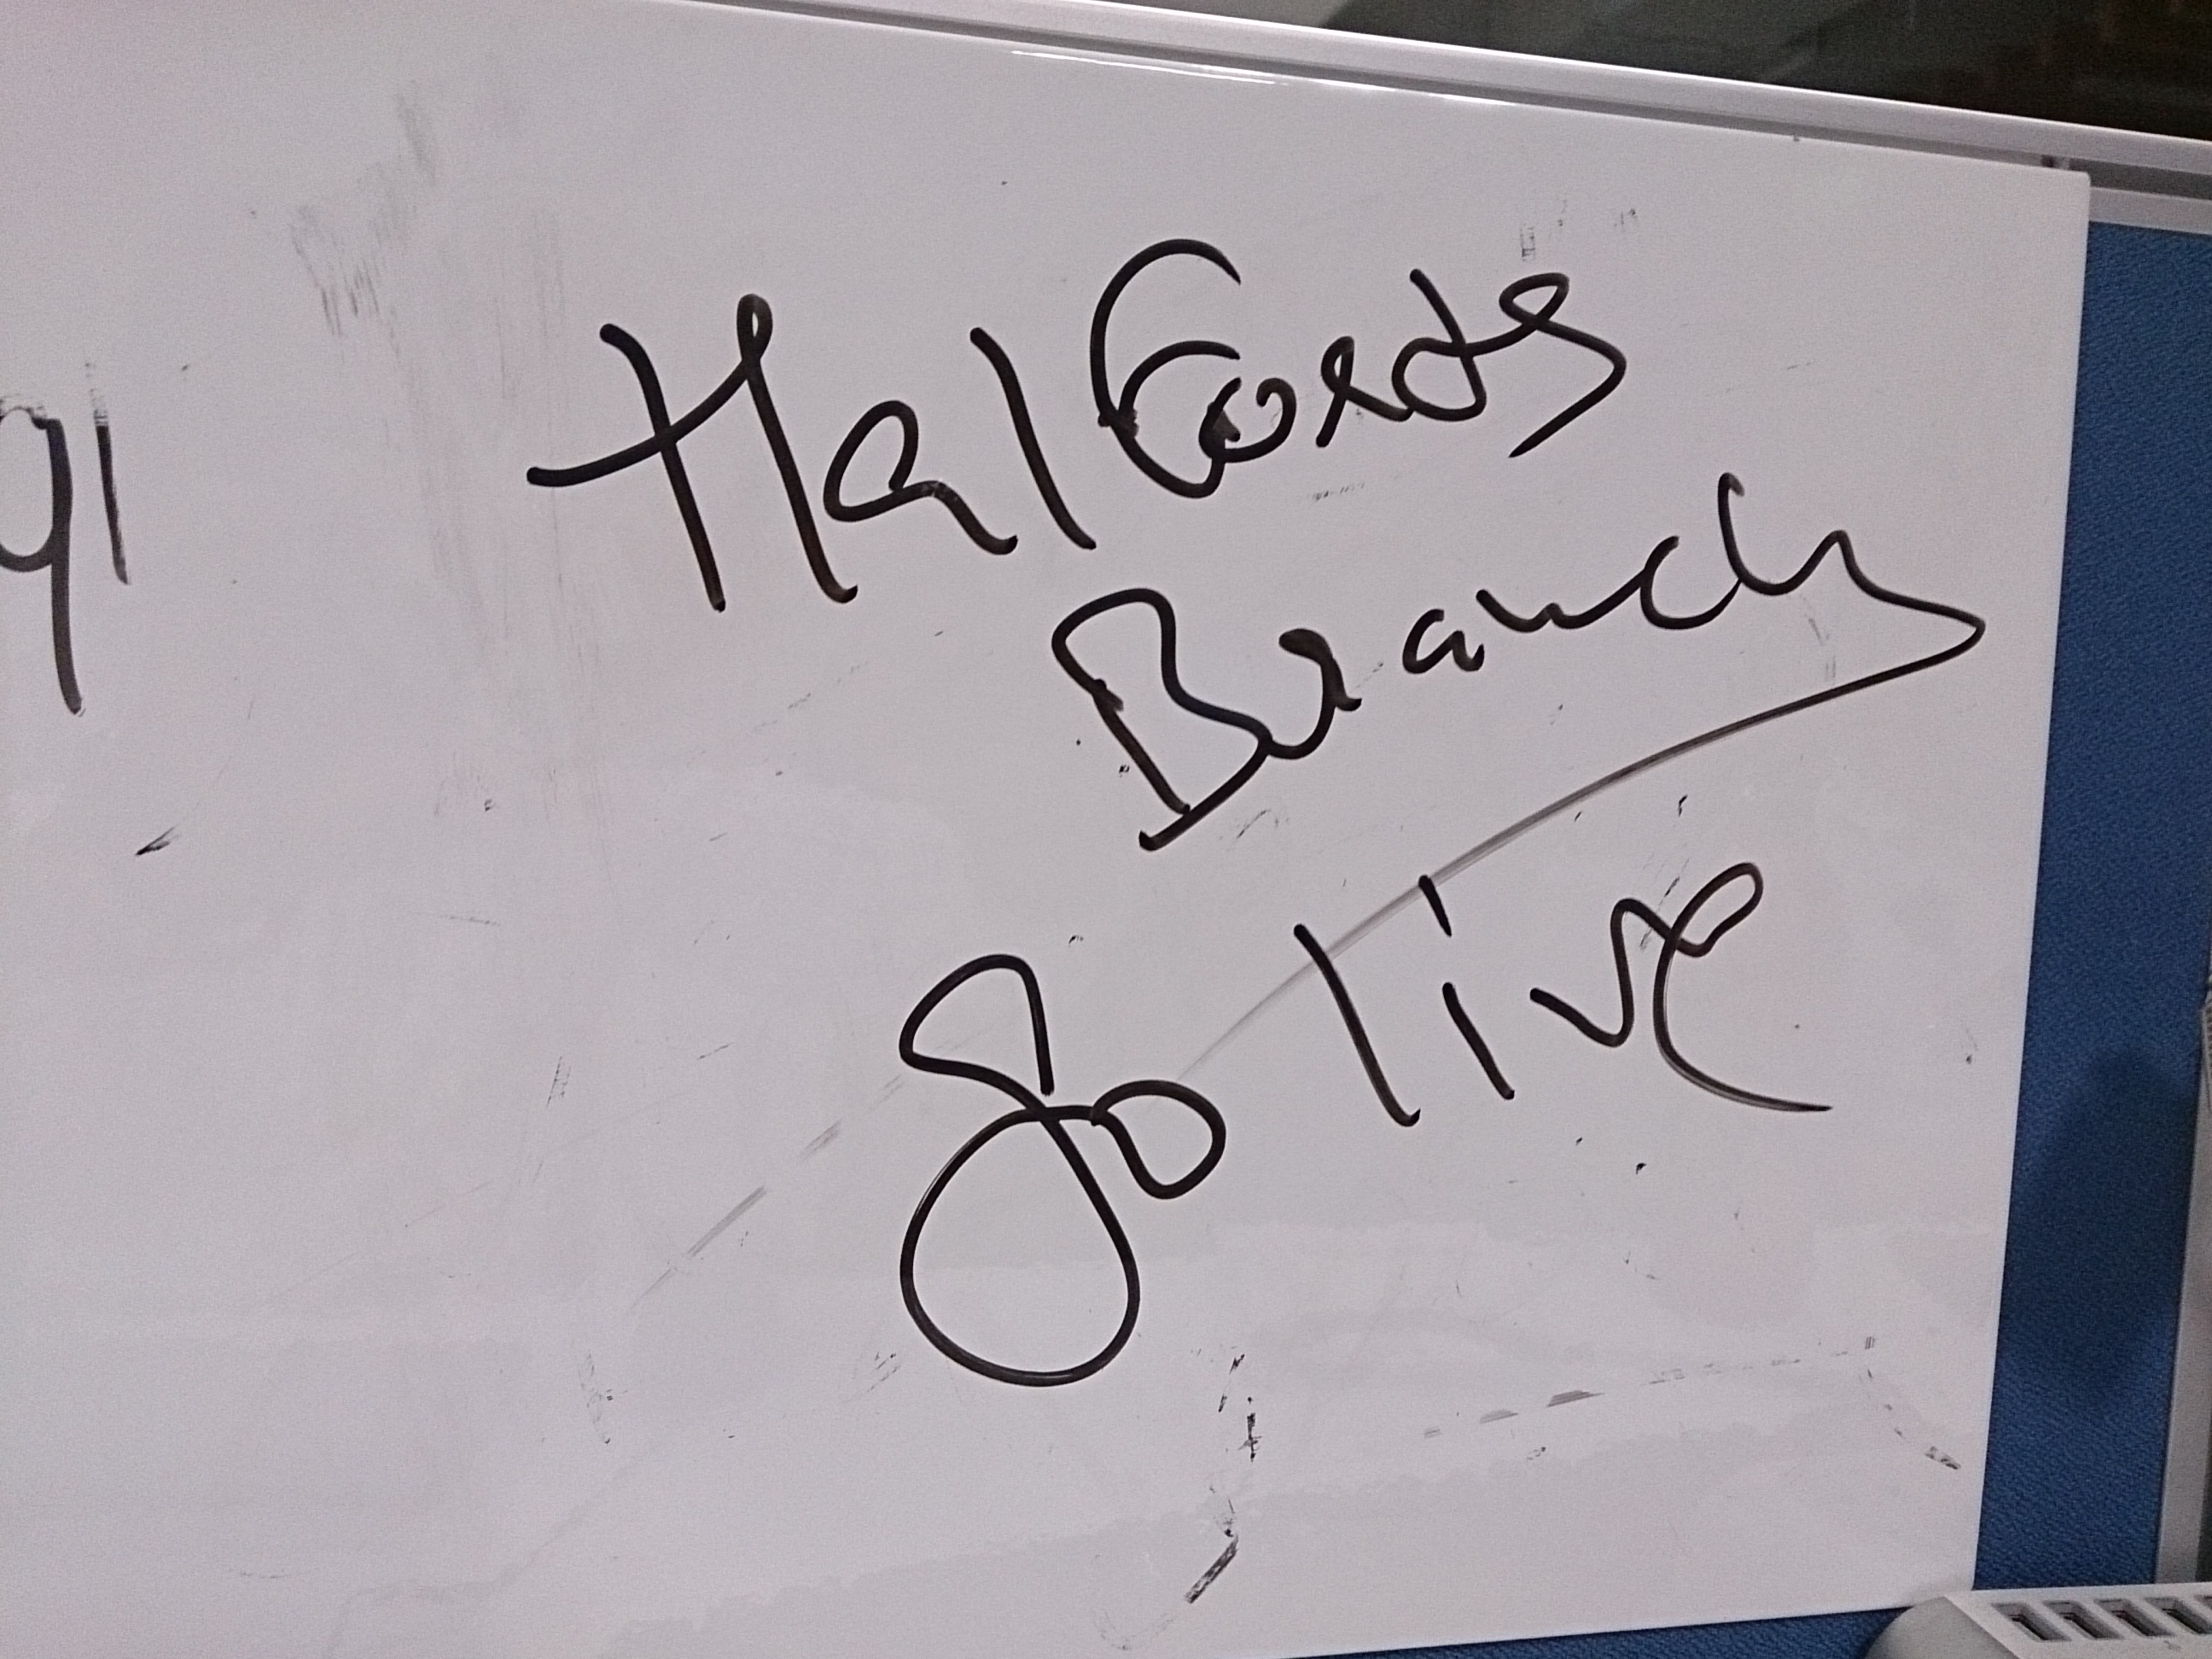 Halfords
Branch
go live